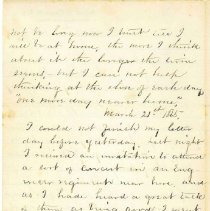 not be long now I trust till I
will be at home, the more I think
about it the longer the time
seems, but I can not help
thinking at the close of each day,
"one more day nearer home."
March 21st 1865
I could not finish my letter
day before yesterday, last night
I received an invitation to attend
a sort of Concert in an Ind
regiment near here and
as I have heard a great talk